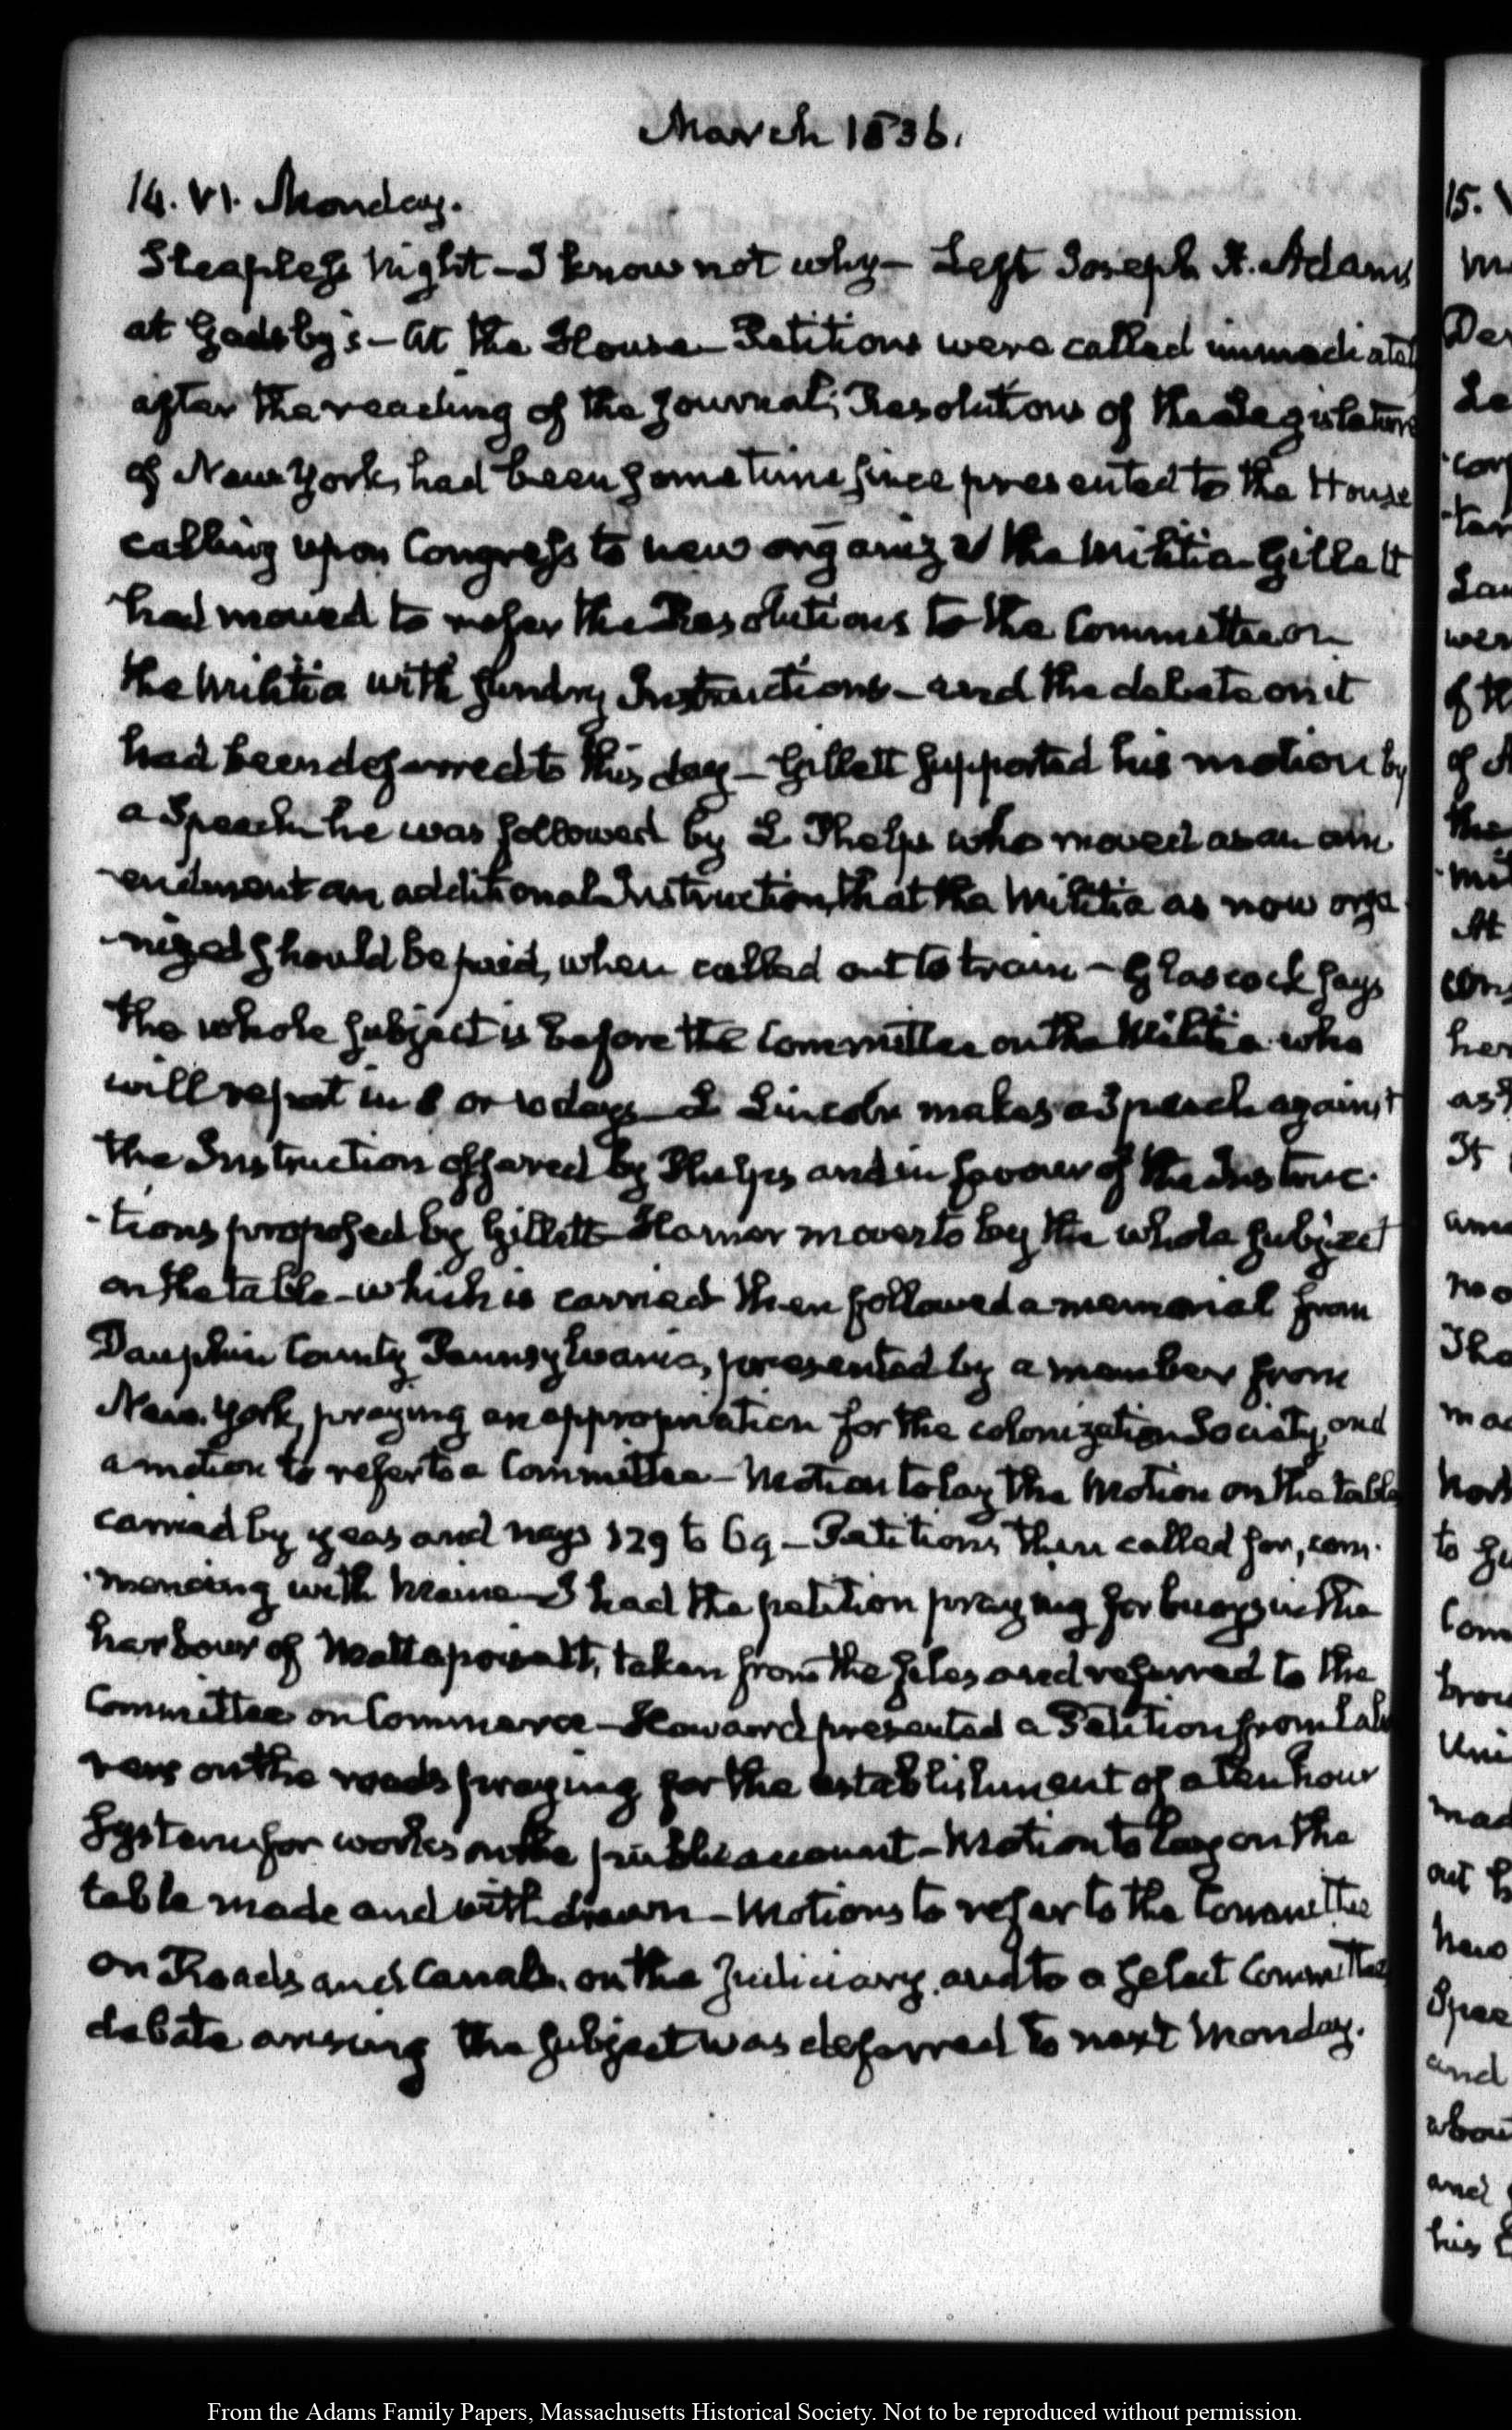 March 1836.
14. VI. Monday.
Sleepless Night – I know not why – Left Joseph H. Adams
at Gadsby's – At the House – Petitions were called immediatel
after the reading of the Journal; Resolutions of the Legislature
of New York, had been some time since presented to the House
calling upon Congress to new organize the Militia – Gillett
had moved to refer the Resolutions to the Committee on
the Militia with sundry Instructions – and the debate on it
had been deferred to this day – Gillett supported his motion by
a Speech he was followed by L Phelps who moved as an am
-endment an additional Instruction, that the Militia as now orga
-nized should be paid, when called out to train – Glascock says
the whole subject is before the Committee on the Militia who
will report in 8 or 10 days – L Lincoln makes a Speech against
the Instruction offered by Phelps and in favour of the Instruc-
-tions proposed by Gillett – Hamer moves to lay the whole subject
on the table – which is carried then followed a memorial from
Dauphin County Pennsylvania, presented by a member from
New-York, praying an appropriation for the colonization Society, and
a motion to refer to a Committee – Motion to lay the Motion on the table
carried by yeas and nays 129 to 69 – Petitions then called for, com-
-mencing with Maine – I had the petition praying for buoys in the
harbour of Mattapoisett, taken from the files and referred to the
Committee on Commerce – Howard presented a Petition from Labo
rers on the roads praying for the establishment of a ten hour
System for works on the public account – Motion to lay on the
table made and withdrawn – Motions to refer to the Committee
on Roads and Canals. on the Judiciary. and to a select Committee
debate arising the subject was deferred to next Monday.
From the Adams Family Papers, Massachusetts Historical Society. Not to be reproduced without permission.